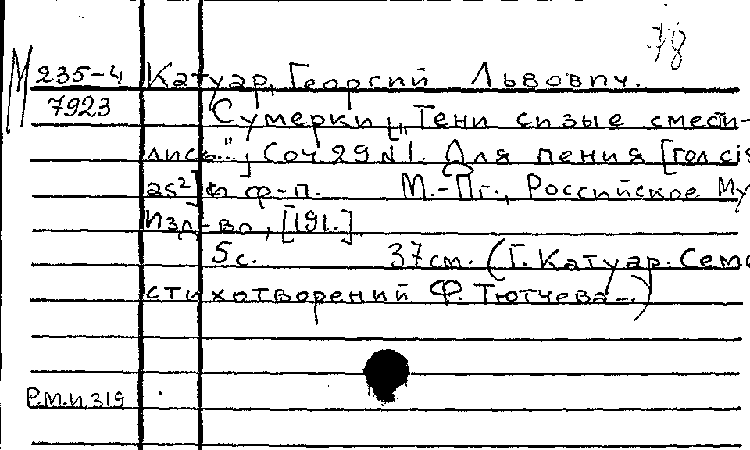 78
М 235-4 Катуар, Георгий Львович.
7923 Сумерки „Тени сизые смеси-
лись..."] Соч 29 №1. Для пения [гол cis
as²] и ф-п. М.-Пг., Российское Му
Изд-во, [191.]
5 с. 37 см. (Г. Катуар. Семь
стихотворений Ф. Тютчева-.)
Р.М.И 319